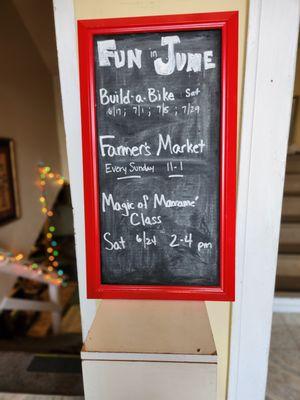 FUN in JUNE
Build-a-Bike Sat
6/17 ; 7/1 ; 7/15 ; 7/29
Farmer's Market
Every Sunday 11-1
Magic of Macrame'
Class
Sat 6/24 2-4 pm